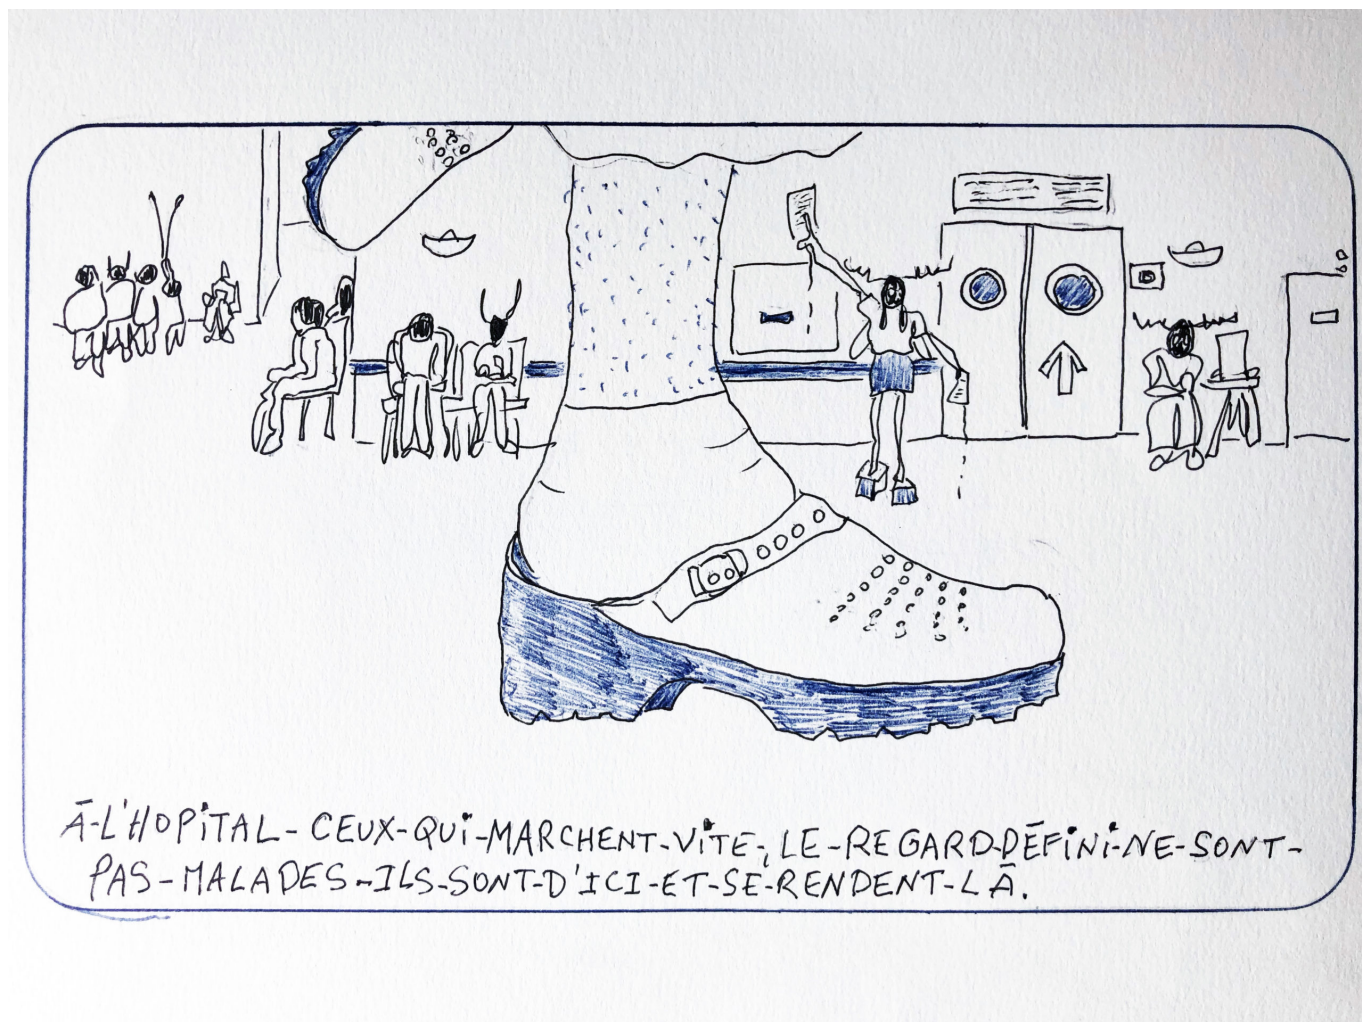 Ā-L'HOPiTAL-CEUX-QUi-MARCHENT-ViTE-, LE-REGARD-DĒFiNi-NE-SONT-
PAS-MALADES-ILS-SONT-D'ICI-ET-SE-RENDENT-LĀ.